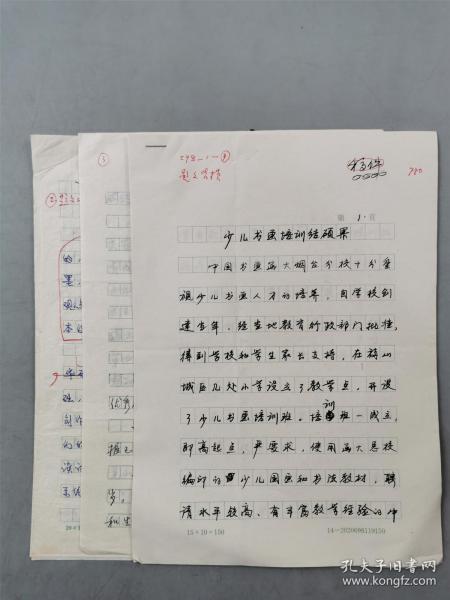 298-1-①
稿件
780
第 1 页
少儿书画培训结硕果
中国书画函大烟台分校十分重
视少儿书画人才的培养，自学校创
建当年，经当地教育行政部门批准，
得到学校和学生家长支持，在福山
城区几处小学设立了教学点，开设
了少儿书画培训班。培训班一成立，
即高起点，严要求，使用函大总校
编印的少儿国画和书法教材，聘
请水平较高、有丰富教学经验的中
15×10=150
14—2020098119150
③
优秀
握
步，
和生
②
的
墨，
观
本
华
姓，
创作
们的
演
系统
20×
孔夫子旧书网
www.kongfz.com